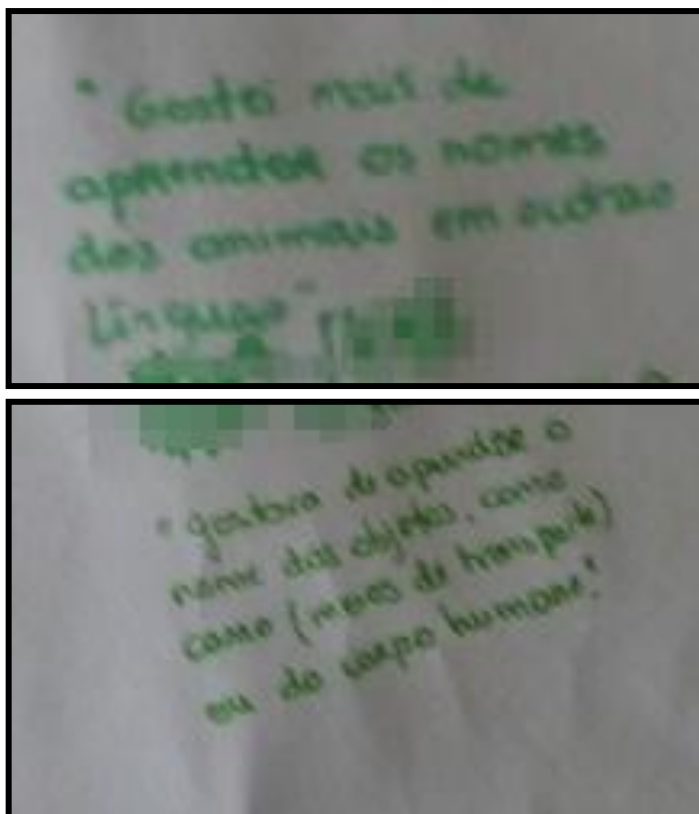 "Gostei mais de
aprender os nomes
dos animais em outras
línguas"
"gostava de aprender o
nome dos objetos, como
carro (meios de transporte)
ou do corpo humano".